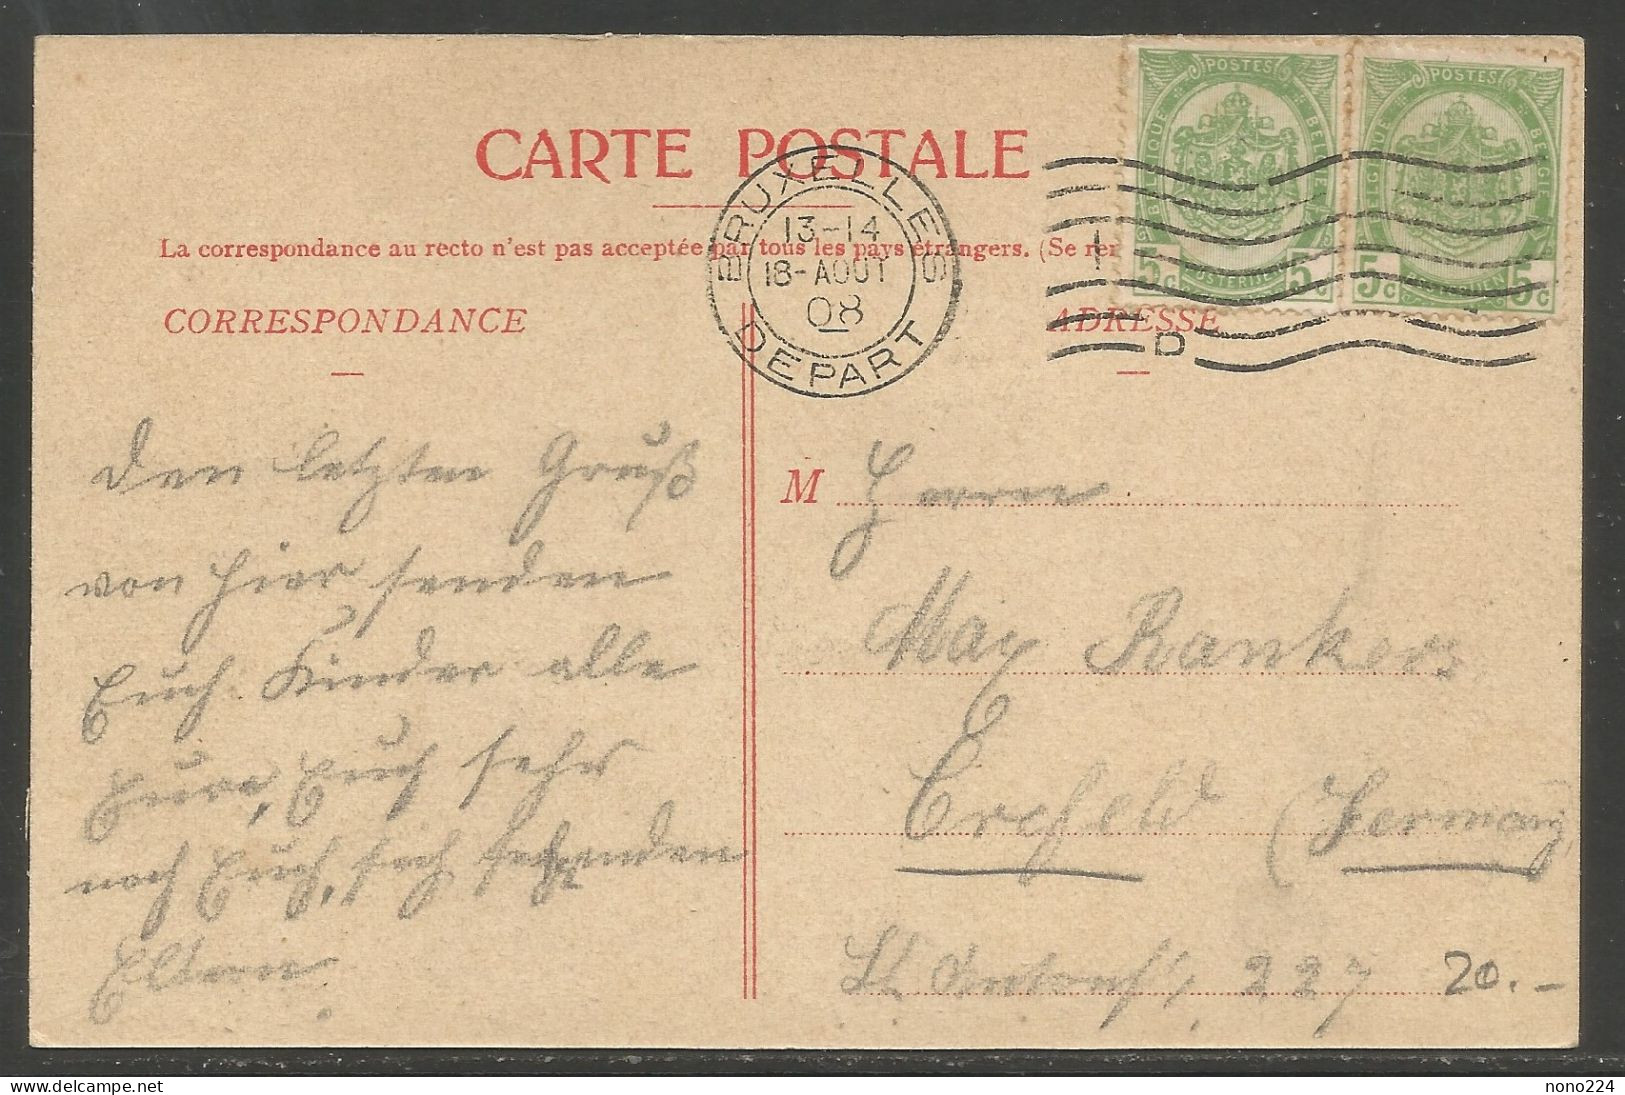 CARTE POSTALE
La correspondance au recto n'est pas acceptée par tous les pays étrangers. (Se ren
CORRESPONDANCE
ADRESSE
BRUXELLES
13-14
18-AOUT
08
DEPART
D
POSTES
BELGIQUE BELGIE
5c POSTERIJEN 5c
POSTES
BELGIQUE BELGIE
5c 5c
den letzten Gruß
von hier senden
Euch Kinder alle
Eure, Euch sehr
nach Euch, sich sehnenden
Eltern.
M Herrn
Max Rankers
Crefeld (Germany)
St. Antonstr. 227 20.-
nono224